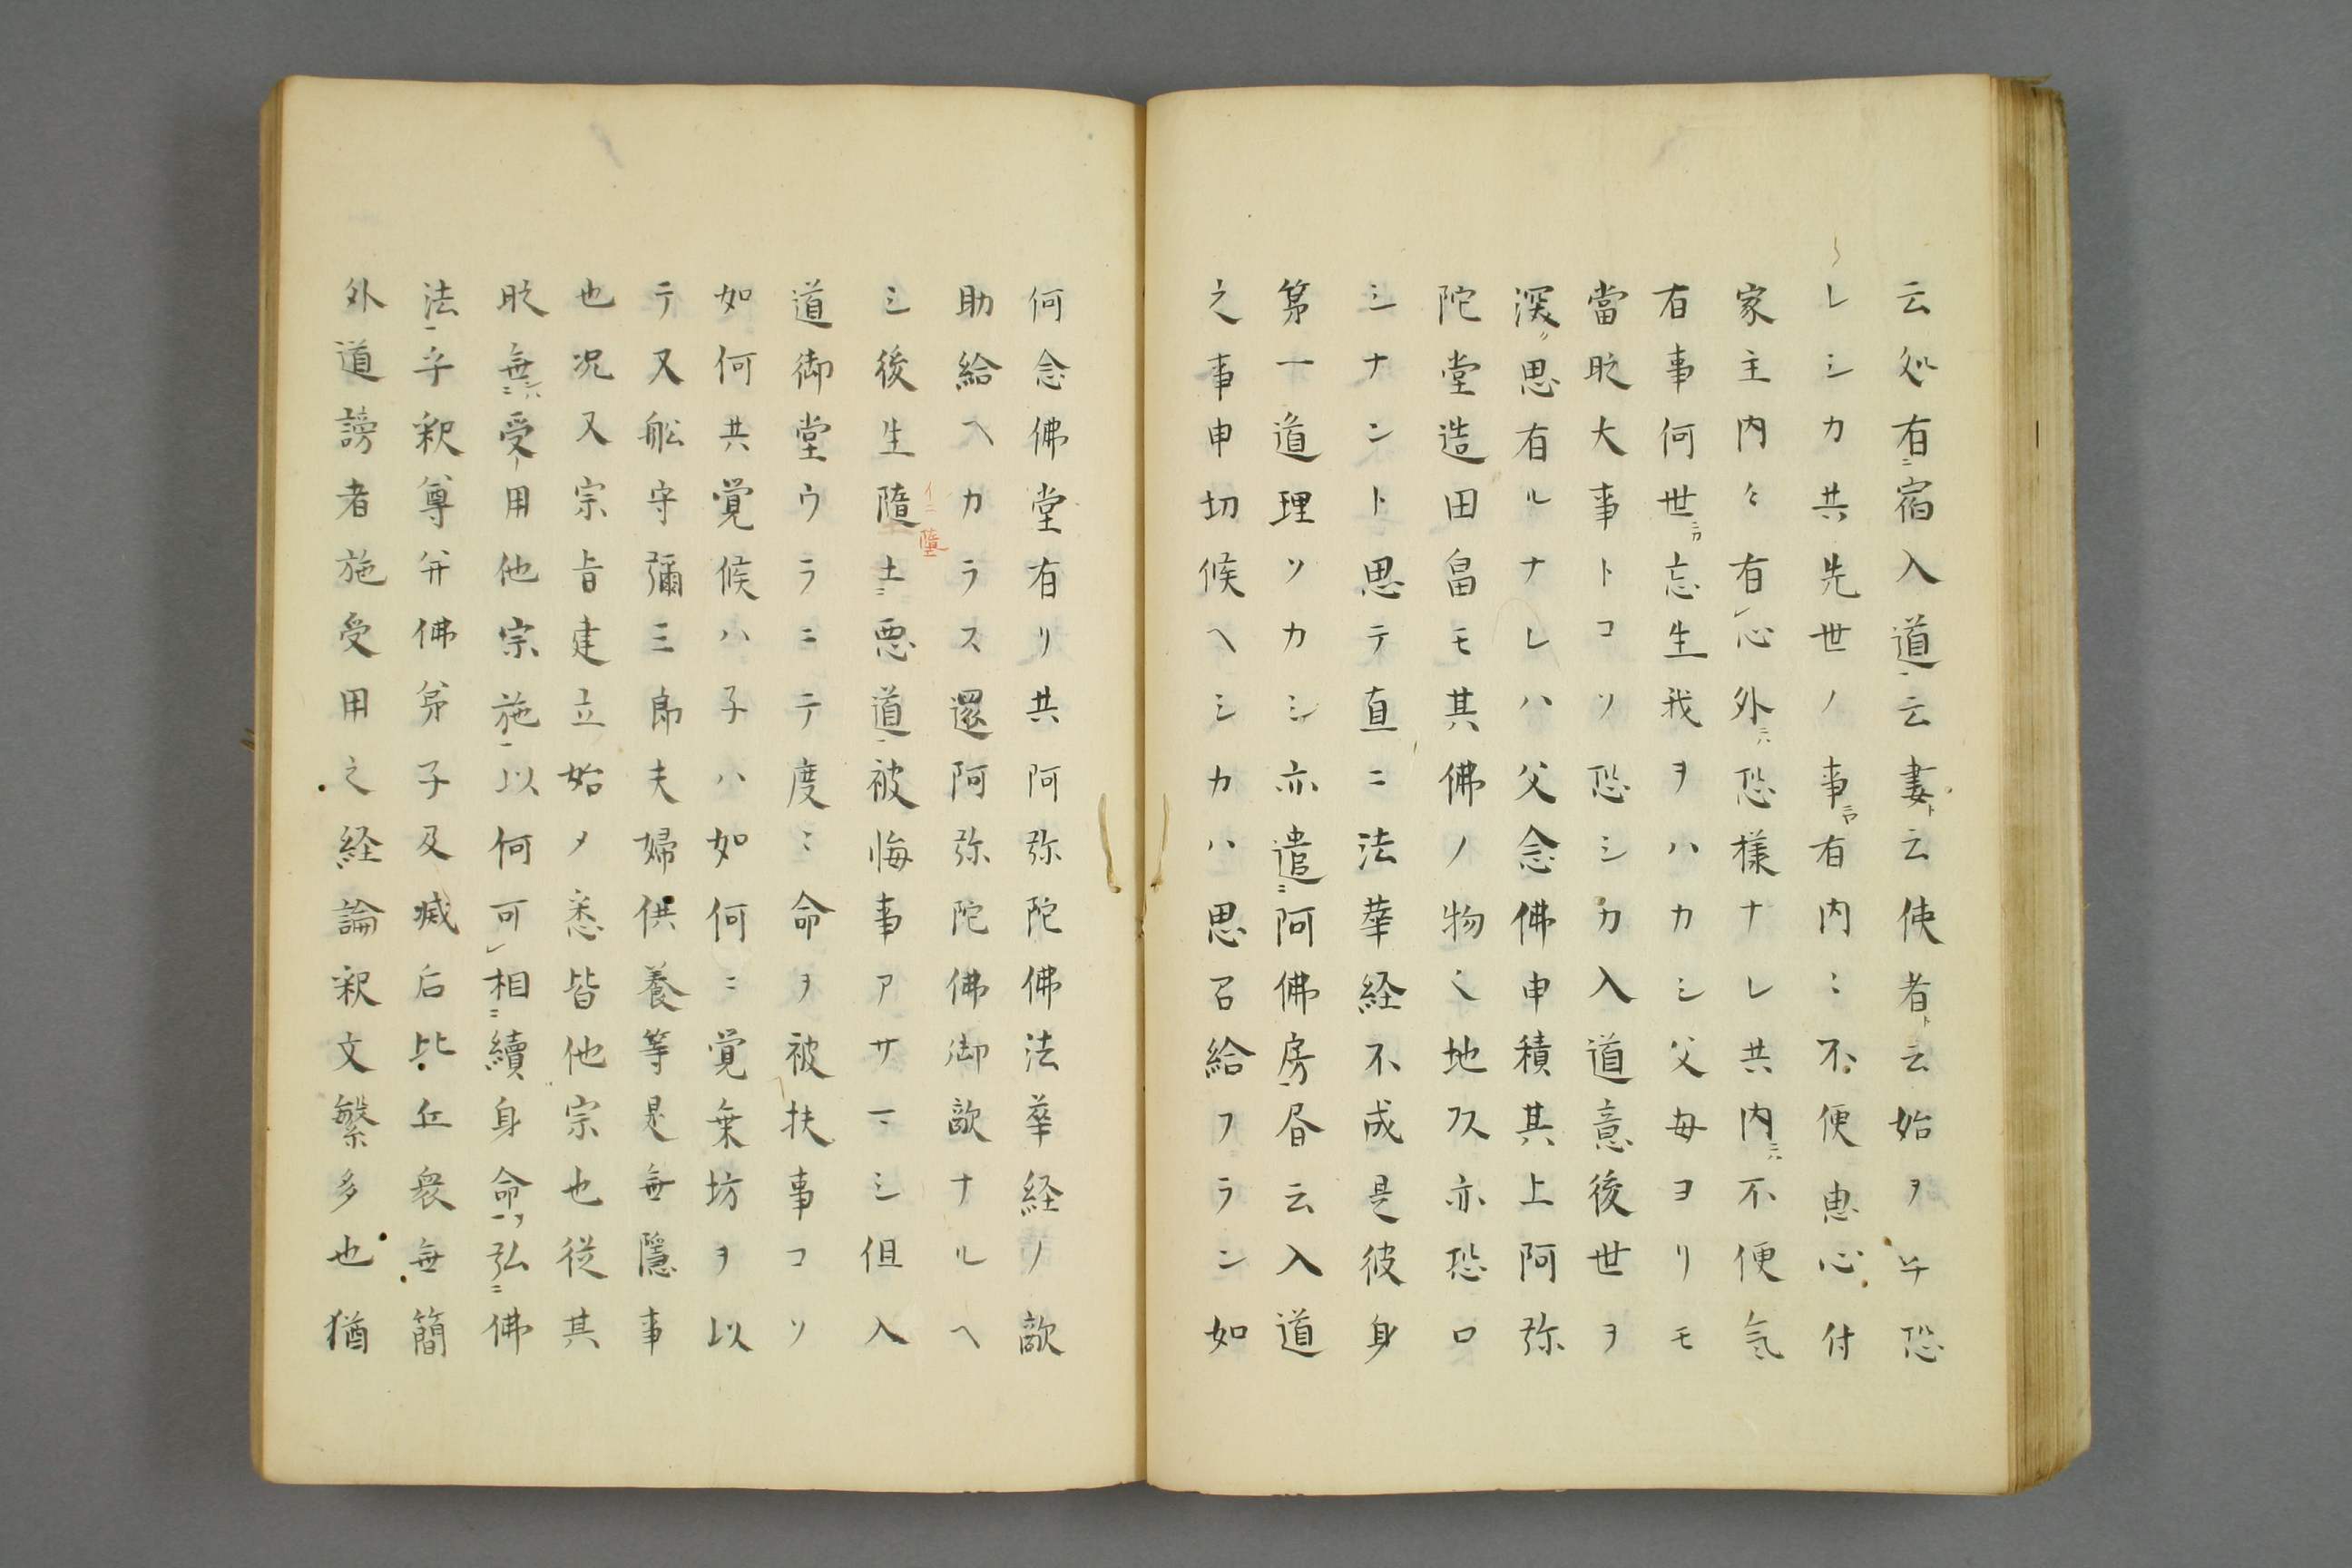 云処有ニ宿入道一云妻ト云使者ト云始ヲハ恐
レシカ共先世ノ事ニヤ有内ミ不便思心付
家主内々有レ心外ニハ恐様ナレ共内ニハ不便気
有事何世ニカ忘生我ヲハカシ父母ヨリモ
當時大事トコソ恐シカ入道意後世ヲ
深ク思有ルナレハ父念佛申積其上阿弥
陀堂造田畠モ其佛ノ物也地頭亦恐ロ
シナント思テ直ニ法華経不成是彼身
第一道理ソカシ亦遣ニ阿佛房一昼云入道
之事申切候ヘシカハ思召給フラン如
何念佛堂有リ共阿弥陀佛法華経ノ敵
助給ヘカラス還阿弥陀佛御敵ナルヘ
シ後生隨土ニ悪道一被悔事アサマシ但入
イニ墮
道御堂ウラニテ度ミ命ヲ被扶事コソ
如何共覚候ハ子ハ如何ニ覚乗坊ヲ以
テ又舩守彌三郎夫婦供養等是無隠事
也况又宗旨建立始メ悉皆他宗也従其
時無ニハ受ト用他宗施一以何可レ相ニ續身命一ヲ弘ニ佛
法一乎釈尊并佛弟子及滅后比丘衆無簡
外道謗者施受用之経論釈文繁多也猶